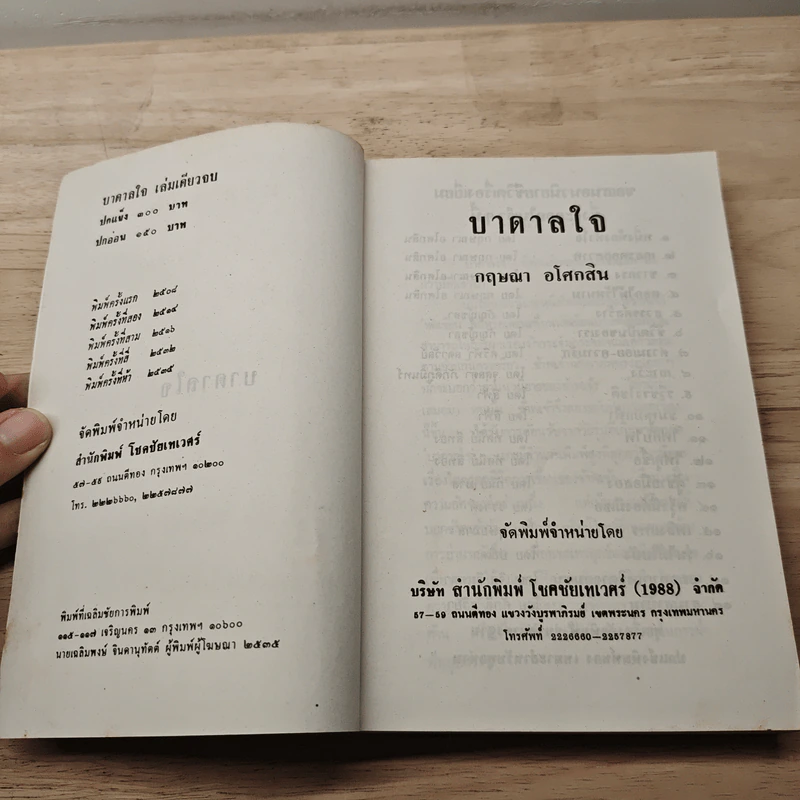 บาดาลใจ เล่มเดียวจบ
ปกแข็ง ๓๐๐ บาท
ปกอ่อน ๑๕๐ บาท
พิมพ์ครั้งแรก ๒๕๐๘
พิมพ์ครั้งที่สอง ๒๕๑๔
พิมพ์ครั้งที่สาม ๒๕๑๖
พิมพ์ครั้งที่สี่ ๒๕๓๒
พิมพ์ครั้งที่ห้า ๒๕๓๕
จัดพิมพ์จำหน่ายโดย
สำนักพิมพ์ โชคชัยเทเวศร์
๕๗-๕๙ ถนนตีทอง กรุงเทพฯ ๑๐๒๐๐
โทร. ๒๒๒๖๖๖๐, ๒๒๕๗๘๗๗
พิมพ์ที่เฉลิมชัยการพิมพ์
๑๑๕-๑๑๗ เจริญนคร ๑๓ กรุงเทพฯ ๑๐๖๐๐
นายเฉลิมพงษ์ จินดานุทัตต์ ผู้พิมพ์ผู้โฆษณา ๒๕๓๕
บาดาลใจ
กฤษณา อโศกสิน
จัดพิมพ์จำหน่ายโดย
บริษัท สำนักพิมพ์ โชคชัยเทเวศร์ (1988) จำกัด
57-59 ถนนตีทอง แขวงวังบูรพาภิรมย์ เขตพระนคร กรุงเทพมหานคร
โทรศัพท์ 2226660-2257877